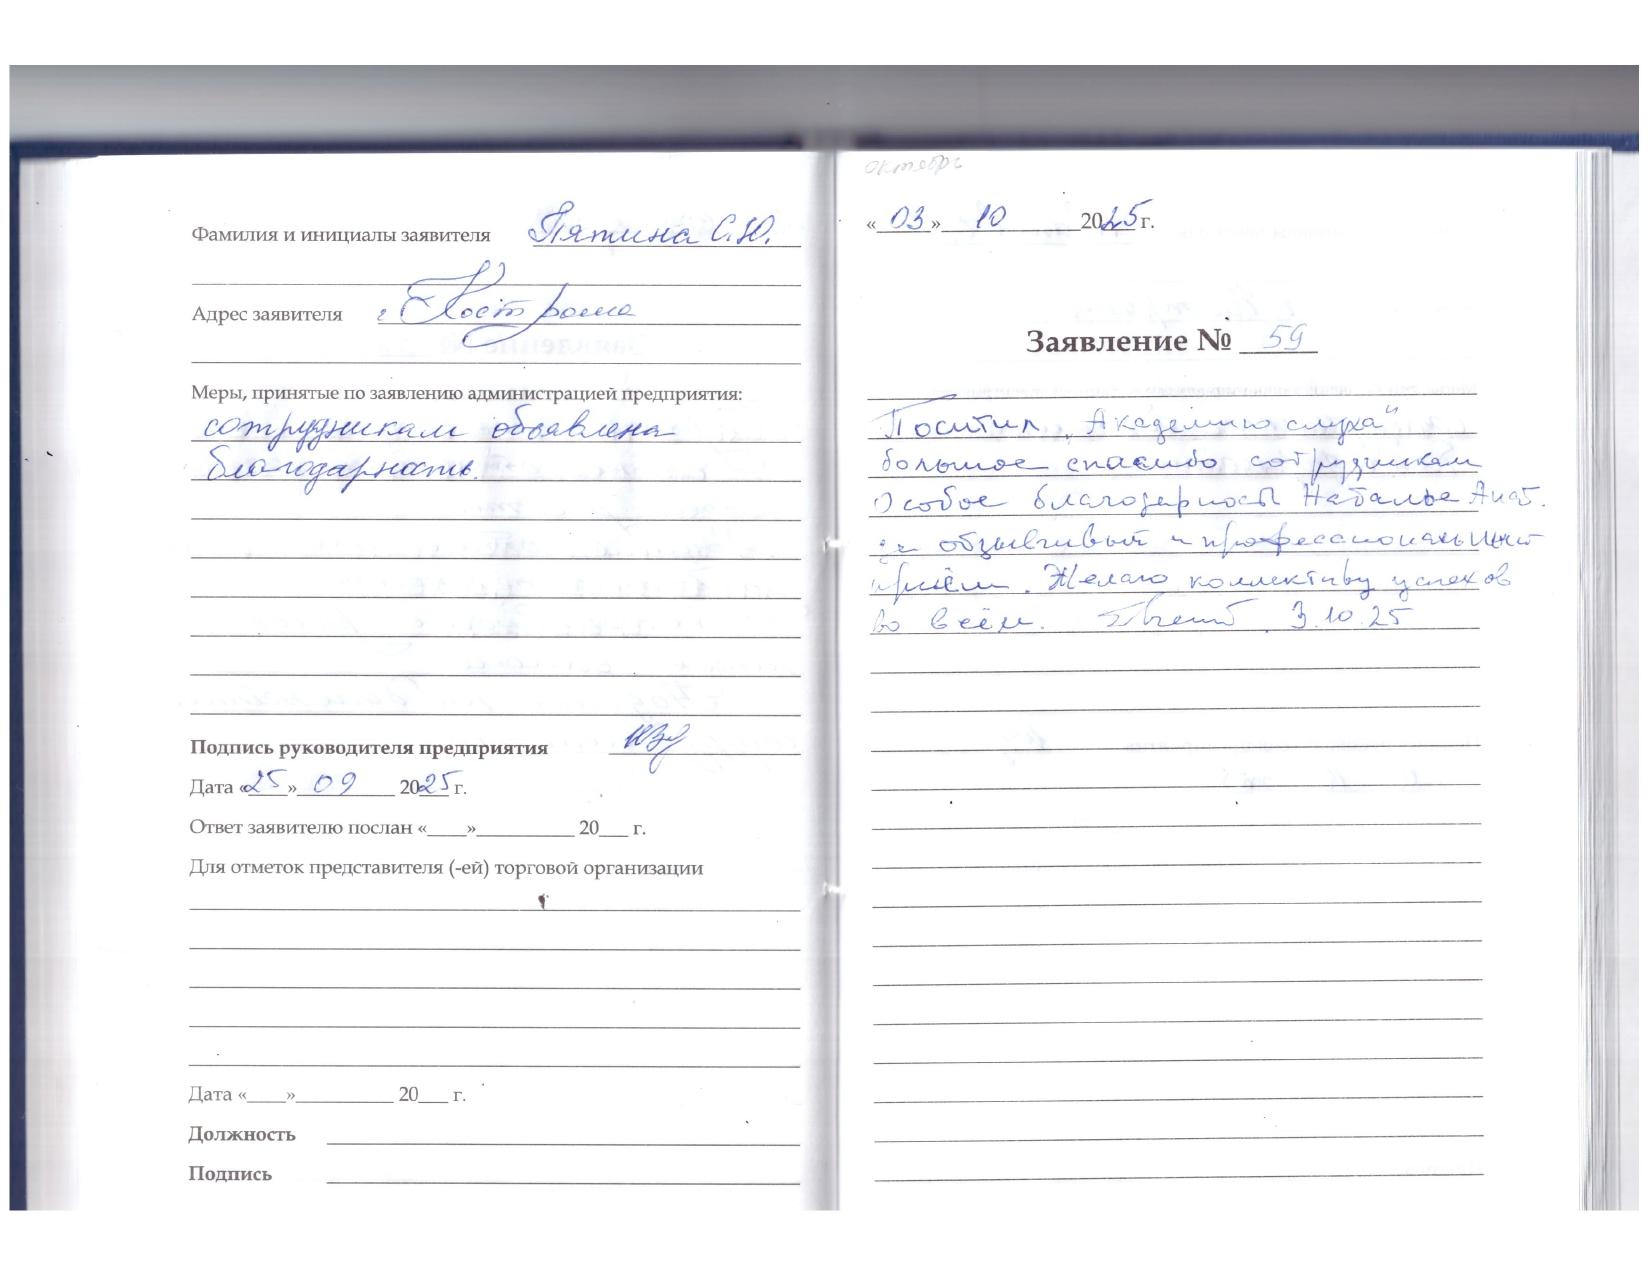 Фамилия и инициалы заявителя Пятина С.Ю.
Адрес заявителя г Кострома
Меры, принятые по заявлению администрацией предприятия:
сотрудникам объявлена
благодарность.
Подпись руководителя предприятия
Дата «25» 09 2025 г.
Ответ заявителю послан «____»__________ 20___ г.
Для отметок представителя (-ей) торговой организации
Дата «____»__________ 20___ г.
Должность
Подпись
октябрь
«03» 10 2025 г.
Заявление № 59
Поситил „Академию слуха"
большое спасибо сотрудникам
Особое благодарность Наталье Анат.
за отзывчивый и профессиональный
приём. Желаю коллективу успехов
во всём. 3.10.25